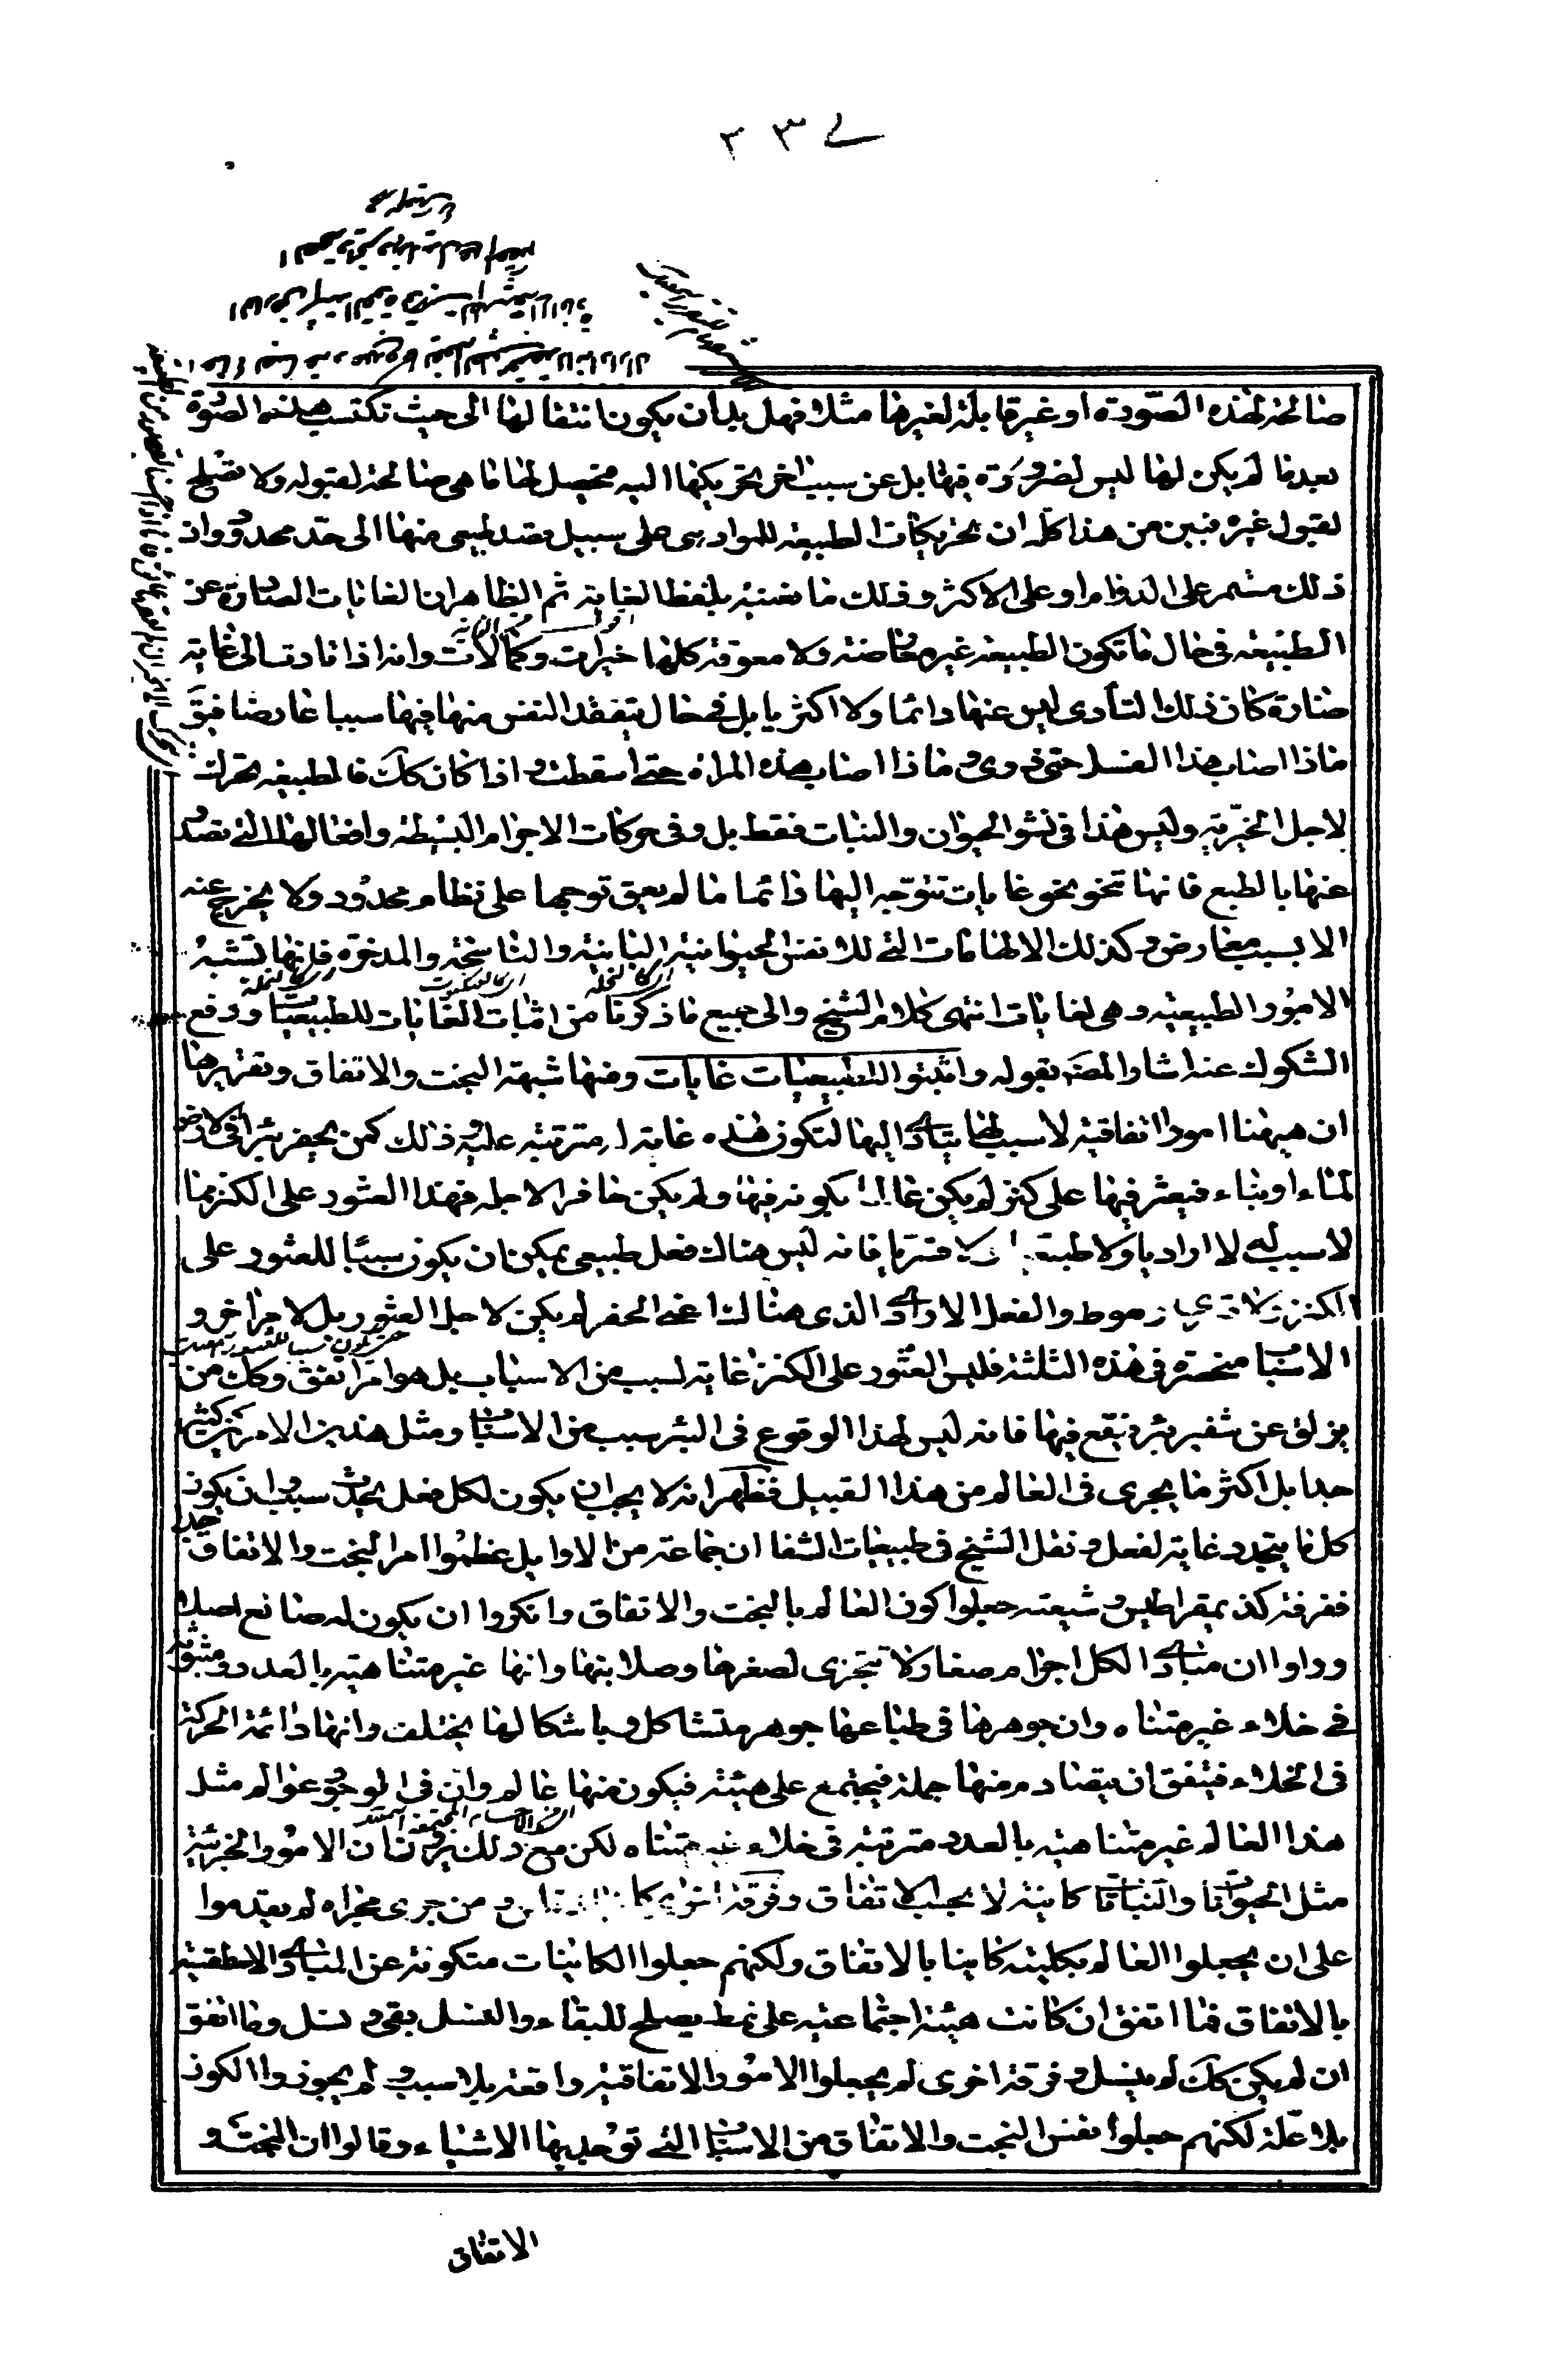 ٢٣٧
صالحة لهذه الصورة او غير قابلة لغيرها مثلا فهل بد ان يكون انتقالها الى حيث تكتسب هذه الصورة
بعد ما لم يكن لها ليس لضرورة فيها بل عن سبب اخر يحركها اليه فتحصل لها ما هى صالحة لقبوله ولا تصلح
لقبول غيره فبين من هذا كله ان تحريكات الطبيعة للمواد هى على سبيل قصد طبيعى منها الى حد محدود وان
ذلك مستمر على الدوام او على الاكثر وذلك ما نعنيه بلفظ الغاية ثم الظاهر ان الغايات الصادرة عن
الطبيعة فى حال ما تكون الطبيعة غير معارضة ولا معوقة كلها خيرات وكمالات وانه اذا تادت الى غاية
ضارة كان ذلك التأدى ليس عنها دائما ولا اكثريا بل فى حال تتفقد النفس منها فيها سببا عارضا فيق
ماذا اصاب هذا الفسيل حتى ذوى وماذا اصاب هذه المراة حتى اسقطت واذا كان كك فالطبيعة تتحرك
لاجل الخيرية وليس هذا فى نشو الحيوان والنبات فقط بل وفى حركات الاجرام البسيطة وافعالها التى تصدر
عنها بالطبع فانها تنحو نحو غايات تتوجه اليها دائما ما لم يعق توجها على نظام محدود ولا يخرج عنه
الا بسبب معارض وكذلك الالهامات التى للانفس الحيوانية البانية والناسجة والمدخرة فانها تشبه
الامور الطبيعية وهى لغايات انتهى كلام الشيخ والى جميع ما ذكرنا من اثبات الغايات للطبيعيات ودفع
الشكوك عنه اشار المصنف بقوله واثبتوا للطبيعيات غايات ومنها شبهة البخت والاتفاق وتقريرها
ان ههنا امورا اتفاقية لا سبب لها يتأدى اليها لتكون هذه غاية له مترتبة عليه وذلك كمن يحفر بئرا فى الارض
لماء او بناء فيعثر فيها على كنز لم يكن عالما بكونه فيها ولم يكن حافرا لاجله فهذا العثور على الكنز مما
لا سبب له لا اراديا ولا طبيعيا ولا قسريا فانه ليس هناك فعل طبيعى يمكن ان يكون سببا للعثور على
الكنز ولا قسرى وهو ظ والفعل الارادى الذى هناك اعنى الحفر لم يكن لاجل العثور بل لاجل اخر و
الاسباب منحصرة فى هذه الثلثة فليس العثور على الكنز غاية لسبب من الاسباب بل هو امر اتفق وكك من
يزلق عن شفير بئر فيقع فيها فانه ليس لهذا الوقوع فى البئر سبب من الاسباب ومثل هذين الامرين كثير
جدا بل اكثر ما يجرى فى العالم من هذا القبيل فظهر انه لا يجب ان يكون لكل فعل يحدث سبب وان يكون
كل ما يتجدد غاية لفعل ونقل الشيخ فى طبيعيات الشفا ان جماعة من الاوايل عظموا امر البخت والاتفاق جدا
ففرقة كذيمقراطيس وشيعته جعلوا كون العالم بالبخت والاتفاق وانكروا ان يكون له صانع اصلا
وراوا ان مبادى الكل اجرام صغار لا تتجزى لصغرها وصلابتها وانها غير متناهية بالعدد ومبثوثة
فى خلاء غير متناه وان جوهرها فى طباعها جوهر متشاكل وباشكالها يختلف وانها دائمة الحركة
فى الخلاء فيتفق ان يتصادم منها جملة فيجتمع على هيئة فيكون منها عالم وان فى الوجود عوالم مثل
هذا العالم غير متناهية بالعدد مترتبة فى خلاء غير متناه لكن مع ذلك يرون ان الامور الجزئية
مثل الحيوانات والنباتات كاينة لا بحسب الاتفاق وفرقة اخرى كانباذقلس ومن جرى مجراه لم يقدموا
على ان يجعلوا العالم بكليته كاينا بالاتفاق ولكنهم جعلوا الكاينات متكونة عن المبادى الاسطقسية
بالاتفاق فما اتفق ان كانت هيئة اجتماعية على نمط يصلح للبقاء والنسل بقى ونسل وما اتفق
ان لم يكن كك لم ينسل وفرقة اخرى لم يجعلوا الامور الاتفاقية واقعة بلا سبب ولم يجوزوا الكون
بلا علة لكنهم جعلوا نفس البخت والاتفاق من الاسباب التى توجد بها الاشياء وقالوا ان البخت و
الاتفاق